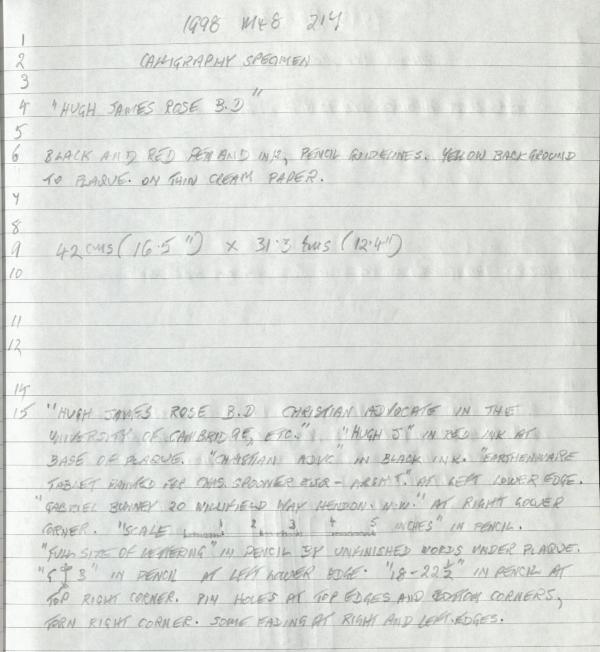 1998 M&8 214
1
2 CALLIGRAPHY SPECIMEN
3
4 "HUGH JAMES ROSE B.D"
5
6 BLACK AND RED PEN AND INK, PENCIL GUIDELINES. YELLOW BACKGROUND
TO PLAQUE. ON THIN CREAM PAPER.
7
8
9 42 cms (16.5") x 31.3 cms (12.4")
10
11
12
14
15 "HUGH JAMES ROSE B.D CHRISTIAN ADVOCATE IN THE
UNIVERSITY OF CAMBRIDGE, ETC." "HUGH J" IN RED INK AT
BASE OF PLAQUE. "CHRISTIAN ADVC" IN BLACK INK. "EARTHENWARE
TABLET PAINTED FOR CHAS. SPOONER ESQR - ARCHT." AT LEFT LOWER EDGE.
"GABRIEL BUNNEY 20 WILLIFIELD WAY HENDON. N.W." AT RIGHT LOWER
CORNER. "SCALE 1 2 3 4 5 INCHES" IN PENCIL.
"FULL SIZE OF LETTERING" IN PENCIL BY UNFINISHED WORDS UNDER PLAQUE.
IN PENCIL AT LEFT LOWER EDGE. "18-22½" IN PENCIL AT
TOP RIGHT CORNER. PIN HOLES AT TOP EDGES AND BOTTOM CORNERS,
TORN RIGHT CORNER. SOME FADING AT RIGHT AND LEFT EDGES.